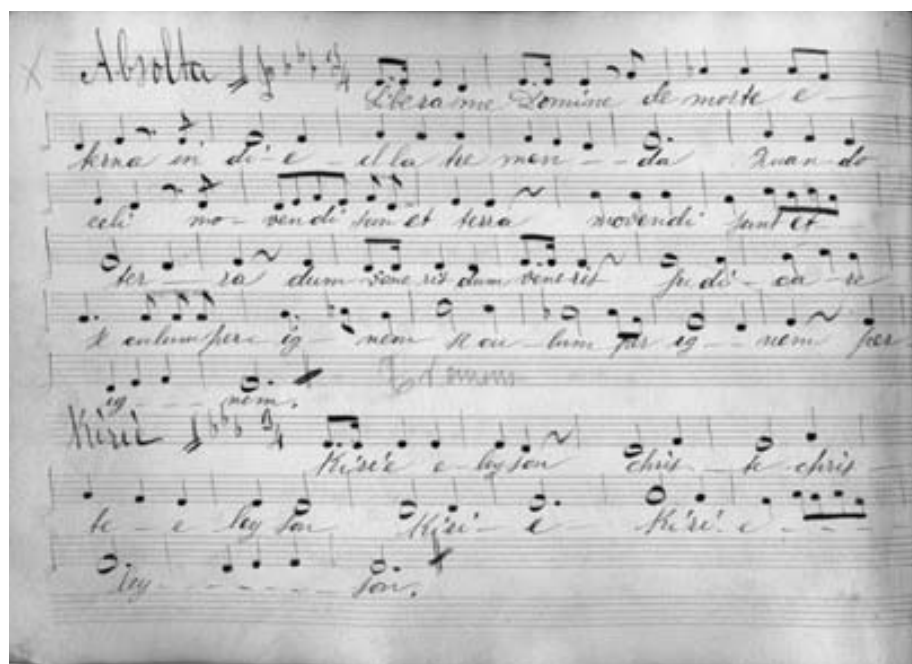 Absolta 3/4 Libera me Domine de morte e -
terna in di - e - ella tre men - - da Quan - do
celi mo - vendi sun et terra movendi sunt et
ter - ra dum vene rit dum vene rit ju di - ca - re
culum per - ig - nem lum per ig - - nem per
ig - - - nem.
Kirié 3/4 Kirié e - ley son chris - te chris -
te - e ley son Kiri - e - Kiri - e - - - -
ley - - - - - - son.